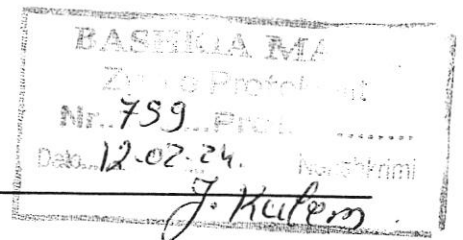 BASHKIA MA
Zyra e Protokollit
Nr. 799 Prot.
Data 12-02-24. Nënshkrimi
J. Kulem